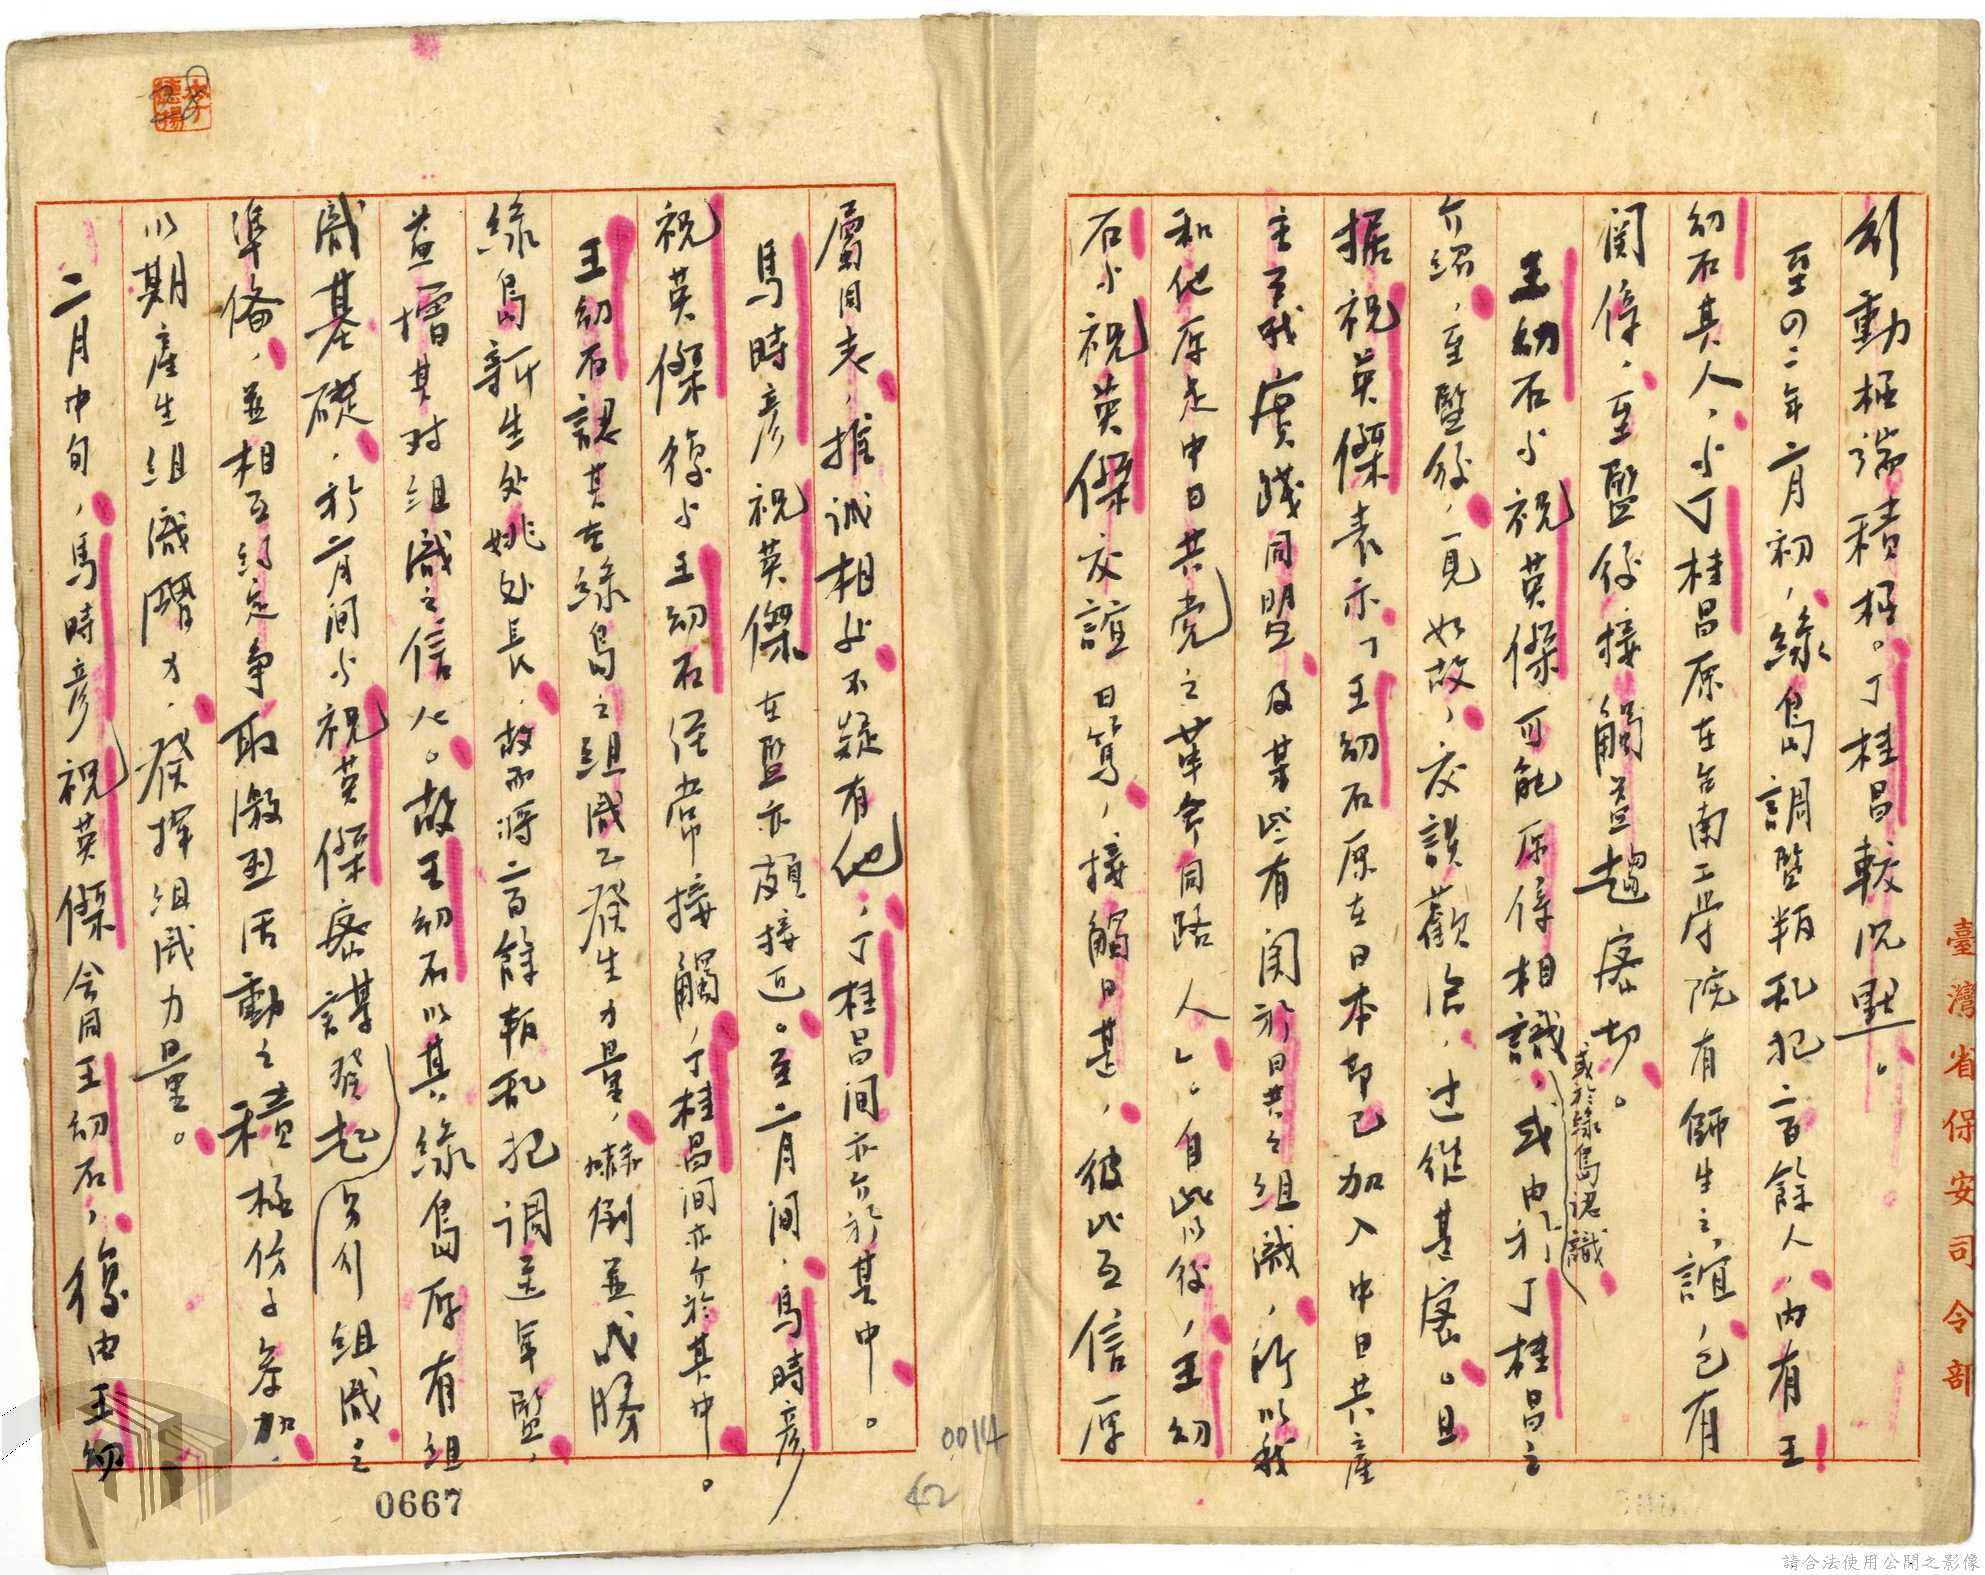 行動極端積極。丁桂昌較沉默。
至四二年二月初，綠島調監叛乱犯二百餘人，內有王
幼石其人，与丁桂昌原在台南工学院有師生之誼，已有
関係，至監後接觸益趨密切。
王幼石与祝英傑可能原係相識，或由於丁桂昌之
或於綠島認識
介紹，至監後，一見如故，交談歡洽，过從甚密。且
据祝英傑表示「王幼石原在日本即已加入中日共產
主义我實踐同盟及某些有関於日共之組織，所以我
和他原是中日共党之革命同路人」。自此以後，王幼
石与祝英傑交誼日篤，接觸日甚，彼此互信原
屬同志，推誠相与不疑有他，丁桂昌间亦介於其中。
馬時彥祝英傑在監亦頗接近。至二月间，馬時彥
祝英傑後与王幼石经常接觸，丁桂昌间亦介於其中。
王幼石認其在綠島之組織已發生力量，嚇倒並战勝
綠島新生处姚处長，故而將二百餘叛乱犯調送軍監，
益增其对組織之信心。故王幼石以其綠島原有組
織基礎，於二月间与祝英傑密謀發起另行組織之
準備，並相互約定争取激烈活動之積極份子参加，
以期產生組織潛力，發揮組織力量。
二月中旬，馬時彥祝英傑会同王幼石，後由王幼
臺灣省保安司令部
0014
62
0667
請合法使用公開之影像